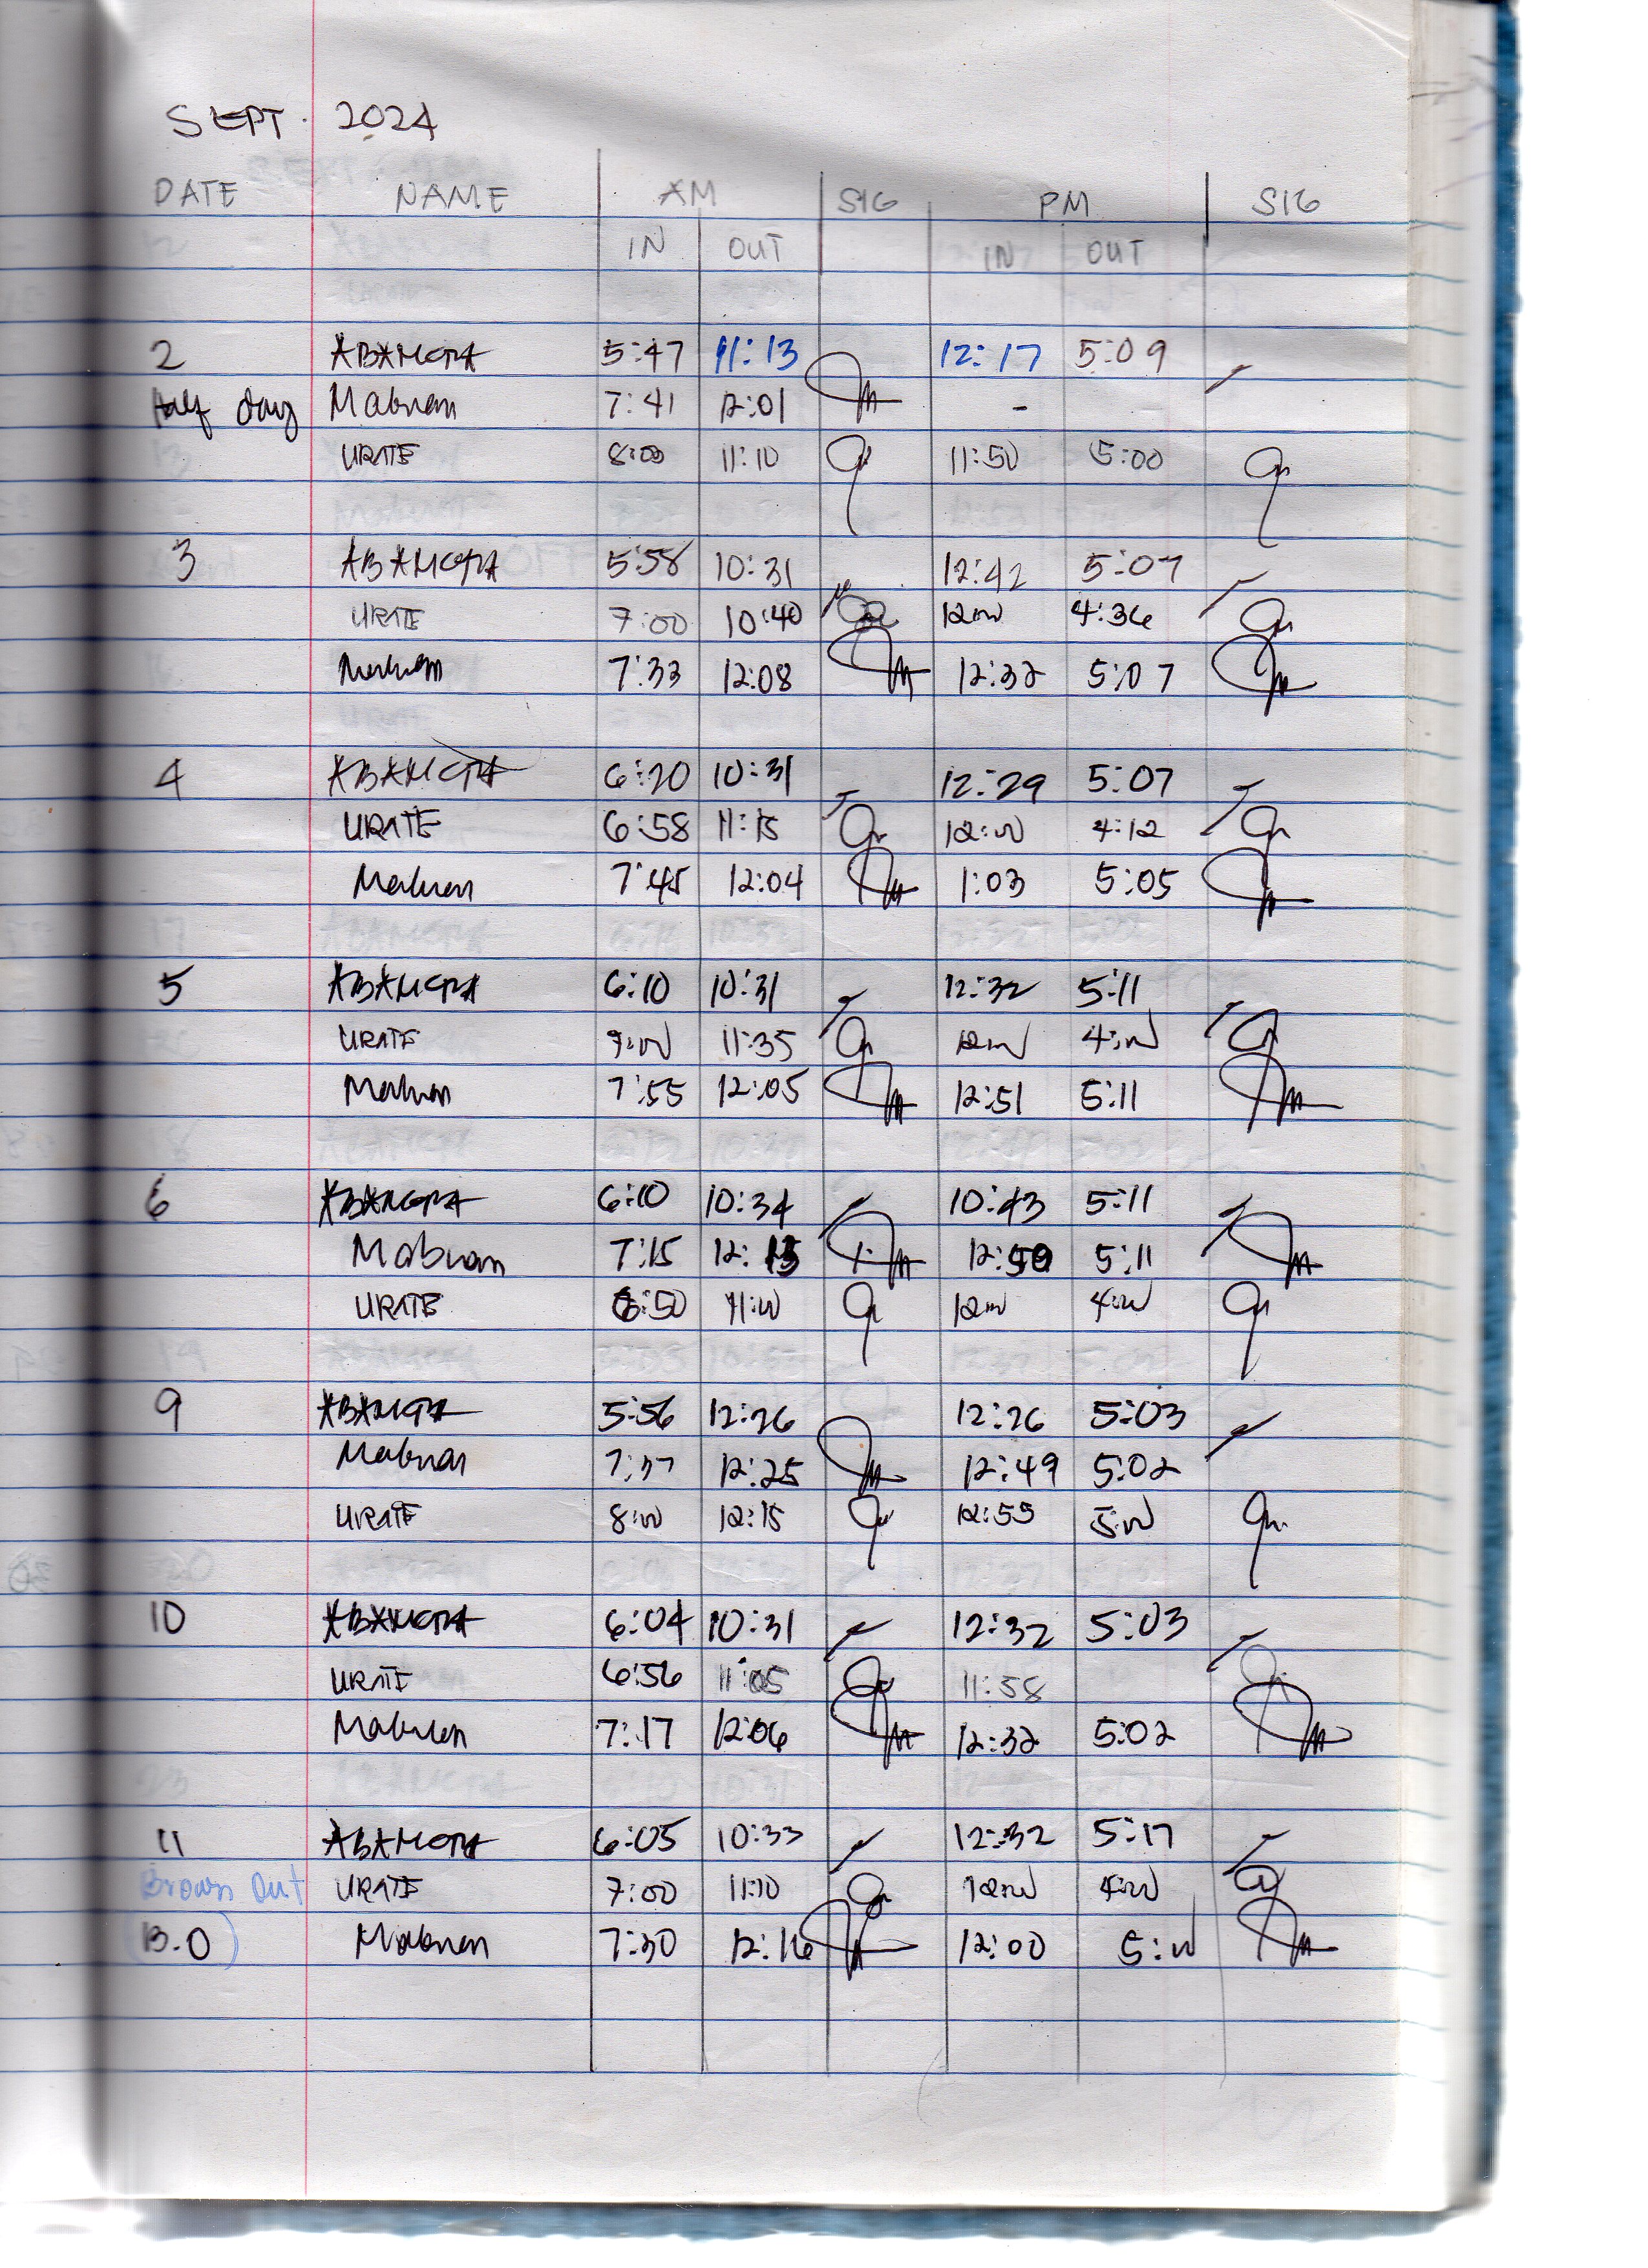 SEPT. 2024
DATE NAME AM SIG PM SIG
IN OUT IN OUT
2 5:47 11:13 12:17 5:09
Half day Mabuan 7:41 12:01 -
URATE 8:00 11:10 11:50 5:00
3 5:58 10:31 12:42 5:07
URATE 7:00 10:40 12:00 4:36
Mabuan 7:33 12:08 12:32 5:07
4 6:20 10:31 12:29 5:07
URATE 6:58 11:15 12:00 4:12
Mabuan 7:45 12:04 1:03 5:05
5 6:10 10:31 12:32 5:11
URATE 11:35 12:00 4:00
Mabuan 7:55 12:05 12:51 5:11
6 6:10 10:34 10:43 5:11
Mabuan 7:15 12:13 12:50 5:11
URATE 6:50 11:00 12:00 4:00
9 5:56 12:26 12:26 5:03
Mabuan 7:37 12:25 12:49 5:02
URATE 8:00 12:15 12:55 5:00
10 6:04 10:31 12:32 5:03
URATE 6:56 11:05 11:58
Mabuan 7:17 12:06 12:32 5:02
11 6:05 10:33 12:32 5:17
Brown Out URATE 7:00 11:10 12:00 4:00
(B.O) Mabuan 7:30 12:16 12:00 5:00